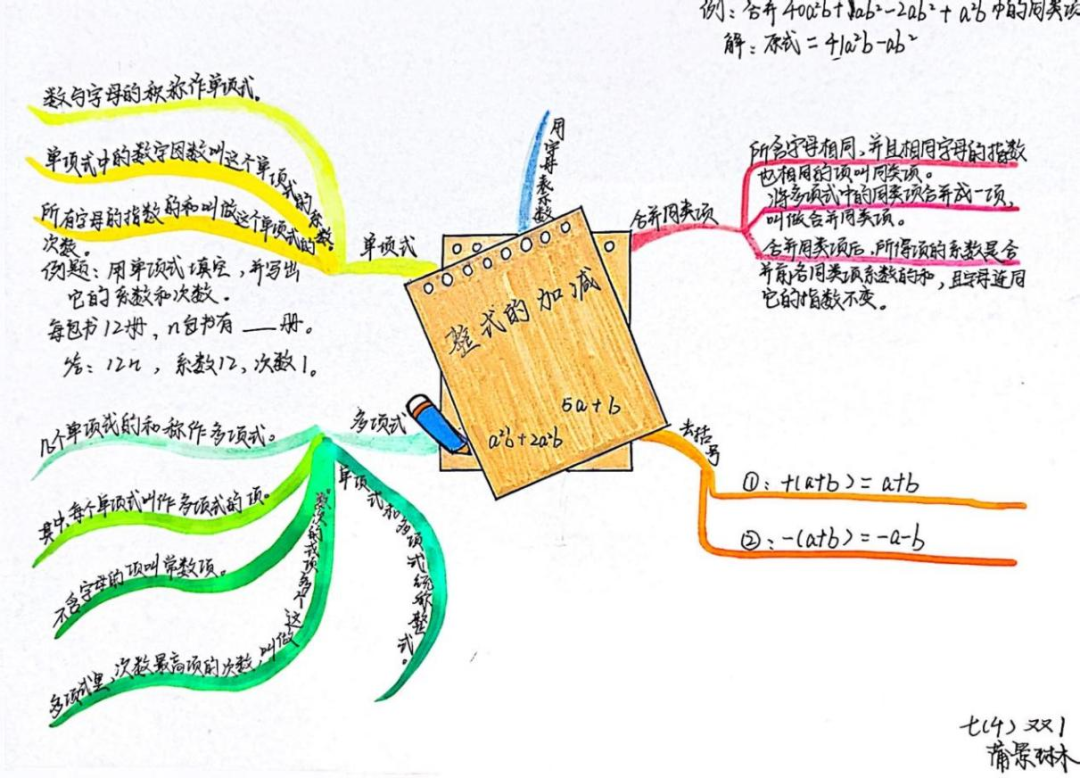 例：合并40a²b+1ab²-2ab²+a²b中的同类项
解：原式=41a²b-ab²
数与字母的积称作单项式。
单项式中的数字因数叫这个单项式的系数。
所有字母的指数的和叫做这个单项式的
次数。
单项式
例题：用单项式填空，并写出
它的系数和次数。
每包书12册，n包书有___册。
答：12n，系数12，次数1。
用字母表示数
合并同类项
所含字母相同，并且相同字母的指数
也相同的项叫同类项。
将多项式中的同类项合并成一项，
叫做合并同类项。
合并同类项后，所得项的系数是合
并前各同类项系数的和，且字母连同
它的指数不变。
整式的加减
5a+b
a²b+2a²b
多项式
几个单项式的和称作多项式。
其中，每个单项式叫作多项式的项。
不含字母的项叫常数项。
多项式里，次数最高项的次数，叫做
这个多项式的次数。
单项式和多项式统称整式。
去括号
①：+(a+b)=a+b
②：-(a+b)=-a-b
七(4) 双1
蒲景琳